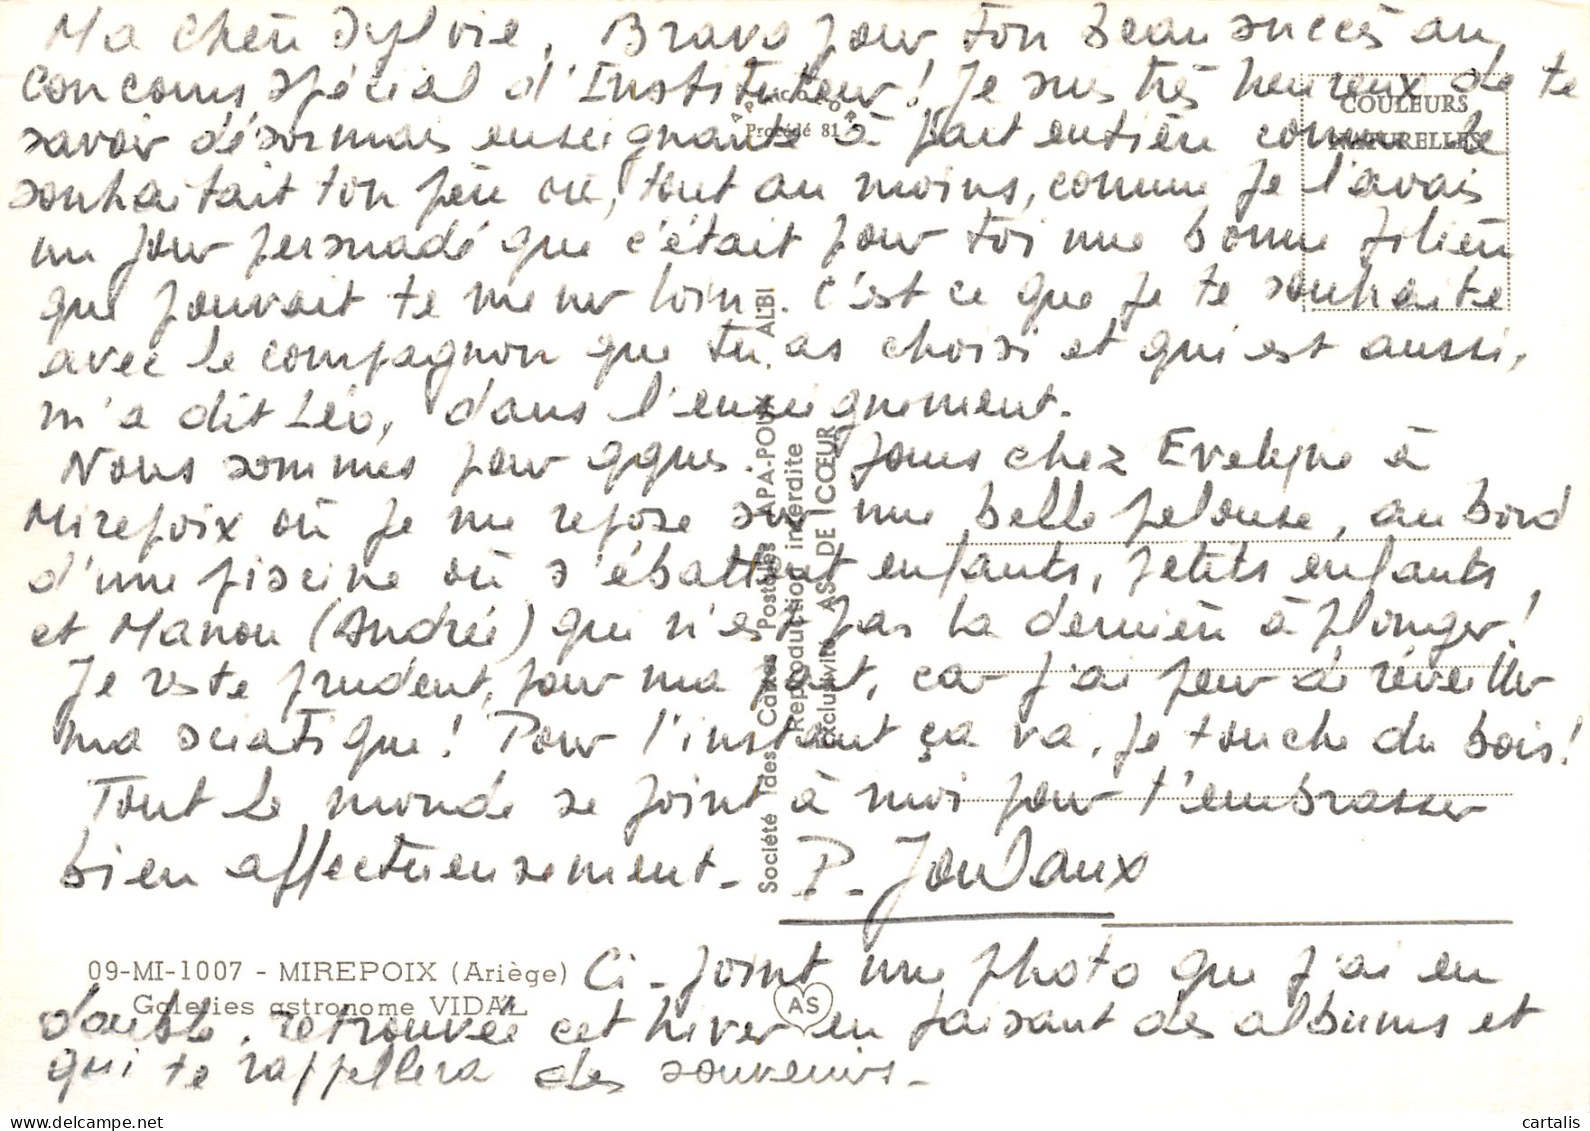 Ma chère Sylvie, Bravo pour ton beau succès au
Concours spécial d'Instituteur! Je suis très heureux de te
savoir désormais enseignante à part entière comme le
souhaitait ton père où, tout au moins, comme je l'avais
un jour persuadé que c'était pour toi une bonne filière
que pouvait te mener loin. C'est ce que je te souhaite
avec le compagnon que tu as choisi et qui est aussi,
m'a dit Léo, dans l'enseignement.
Nous sommes pour qques. jours chez Evelyne à
Mirepoix où je me repose sur une belle pelouse, au bord
d'une piscine où s'ébattent enfants, petits enfants
et Manou (Andrée) qui n'est pas la dernière à plonger!
Je reste prudent, pour ma part, car j'ai peur de réveiller
ma sciatique! Pour l'instant ça va, je touche du bois!
Tout le monde se joint à moi pour t'embrasser
bien affectueusement. P. Jouvaux
Ci-joint une photo que j'ai en
double, retrouvée cet hiver en faisant des albums et
qui te rappellera des souvenirs.
COULEURS
NATURELLES
Procédé 81
Société des Cartes Postales APA-POUX - ALBI
Reproduction interdite
Exclusivité AS DE CŒUR
09-MI-1007 - MIREPOIX (Ariège)
Galeries gastronome VIDAL
AS
delcampe.net
cartalis